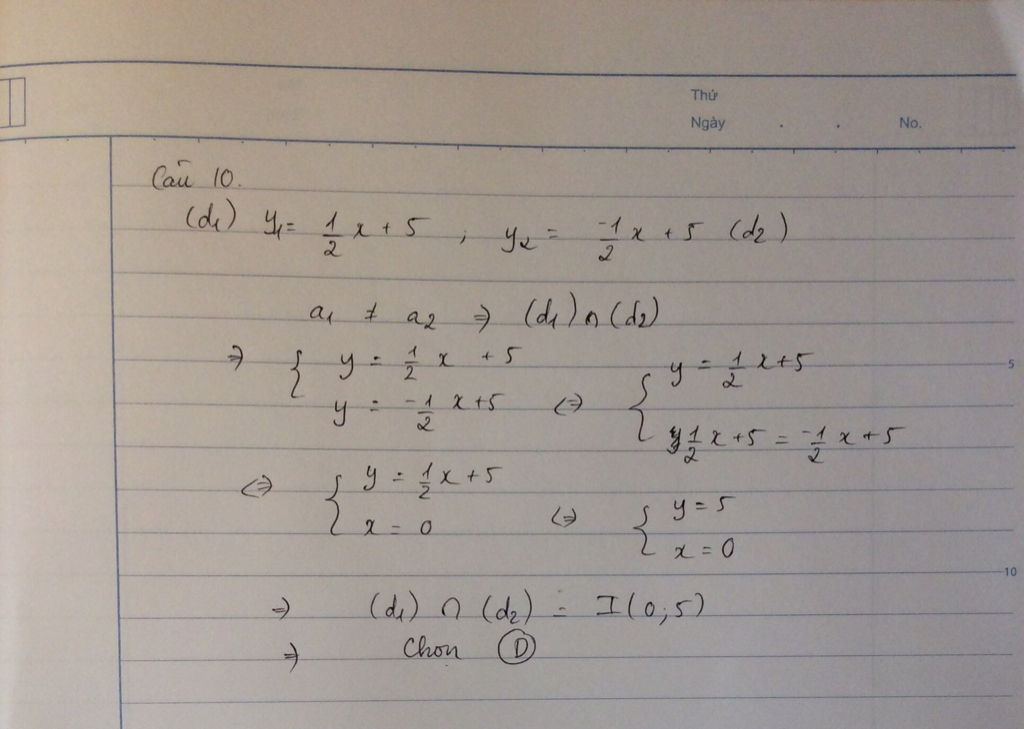 Thứ
Ngày . . No.
Câu 10.
(d1) y1 = 1/2 x + 5 ; y2 = -1/2 x + 5 (d2)
a1 ≠ a2 ⇒ (d1) ∩ (d2)
⇒ { y = 1/2 x + 5
y = -1/2 x + 5 ⇔ { y = 1/2 x + 5
1/2 x + 5 = -1/2 x + 5
5
⇔ { y = 1/2 x + 5
x = 0 ⇔ { y = 5
x = 0
10
⇒ (d1) ∩ (d2) = I (0; 5)
⇒ Chọn D